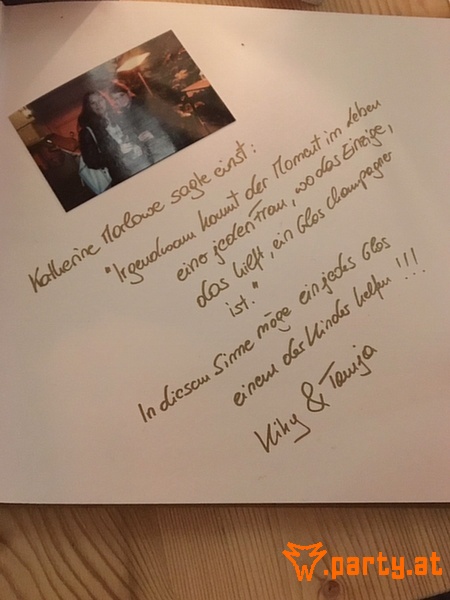 Katherine Marlowe sagte einst:
"Irgendwann kommt der Moment im Leben
einer jeden Frau, wo das Einzige,
das hilft, ein Glas Champagner
ist."
In diesem Sinne möge ein jedes Glas
einem der Kinder helfen!!!
Kiky & Tanija
W.party.at